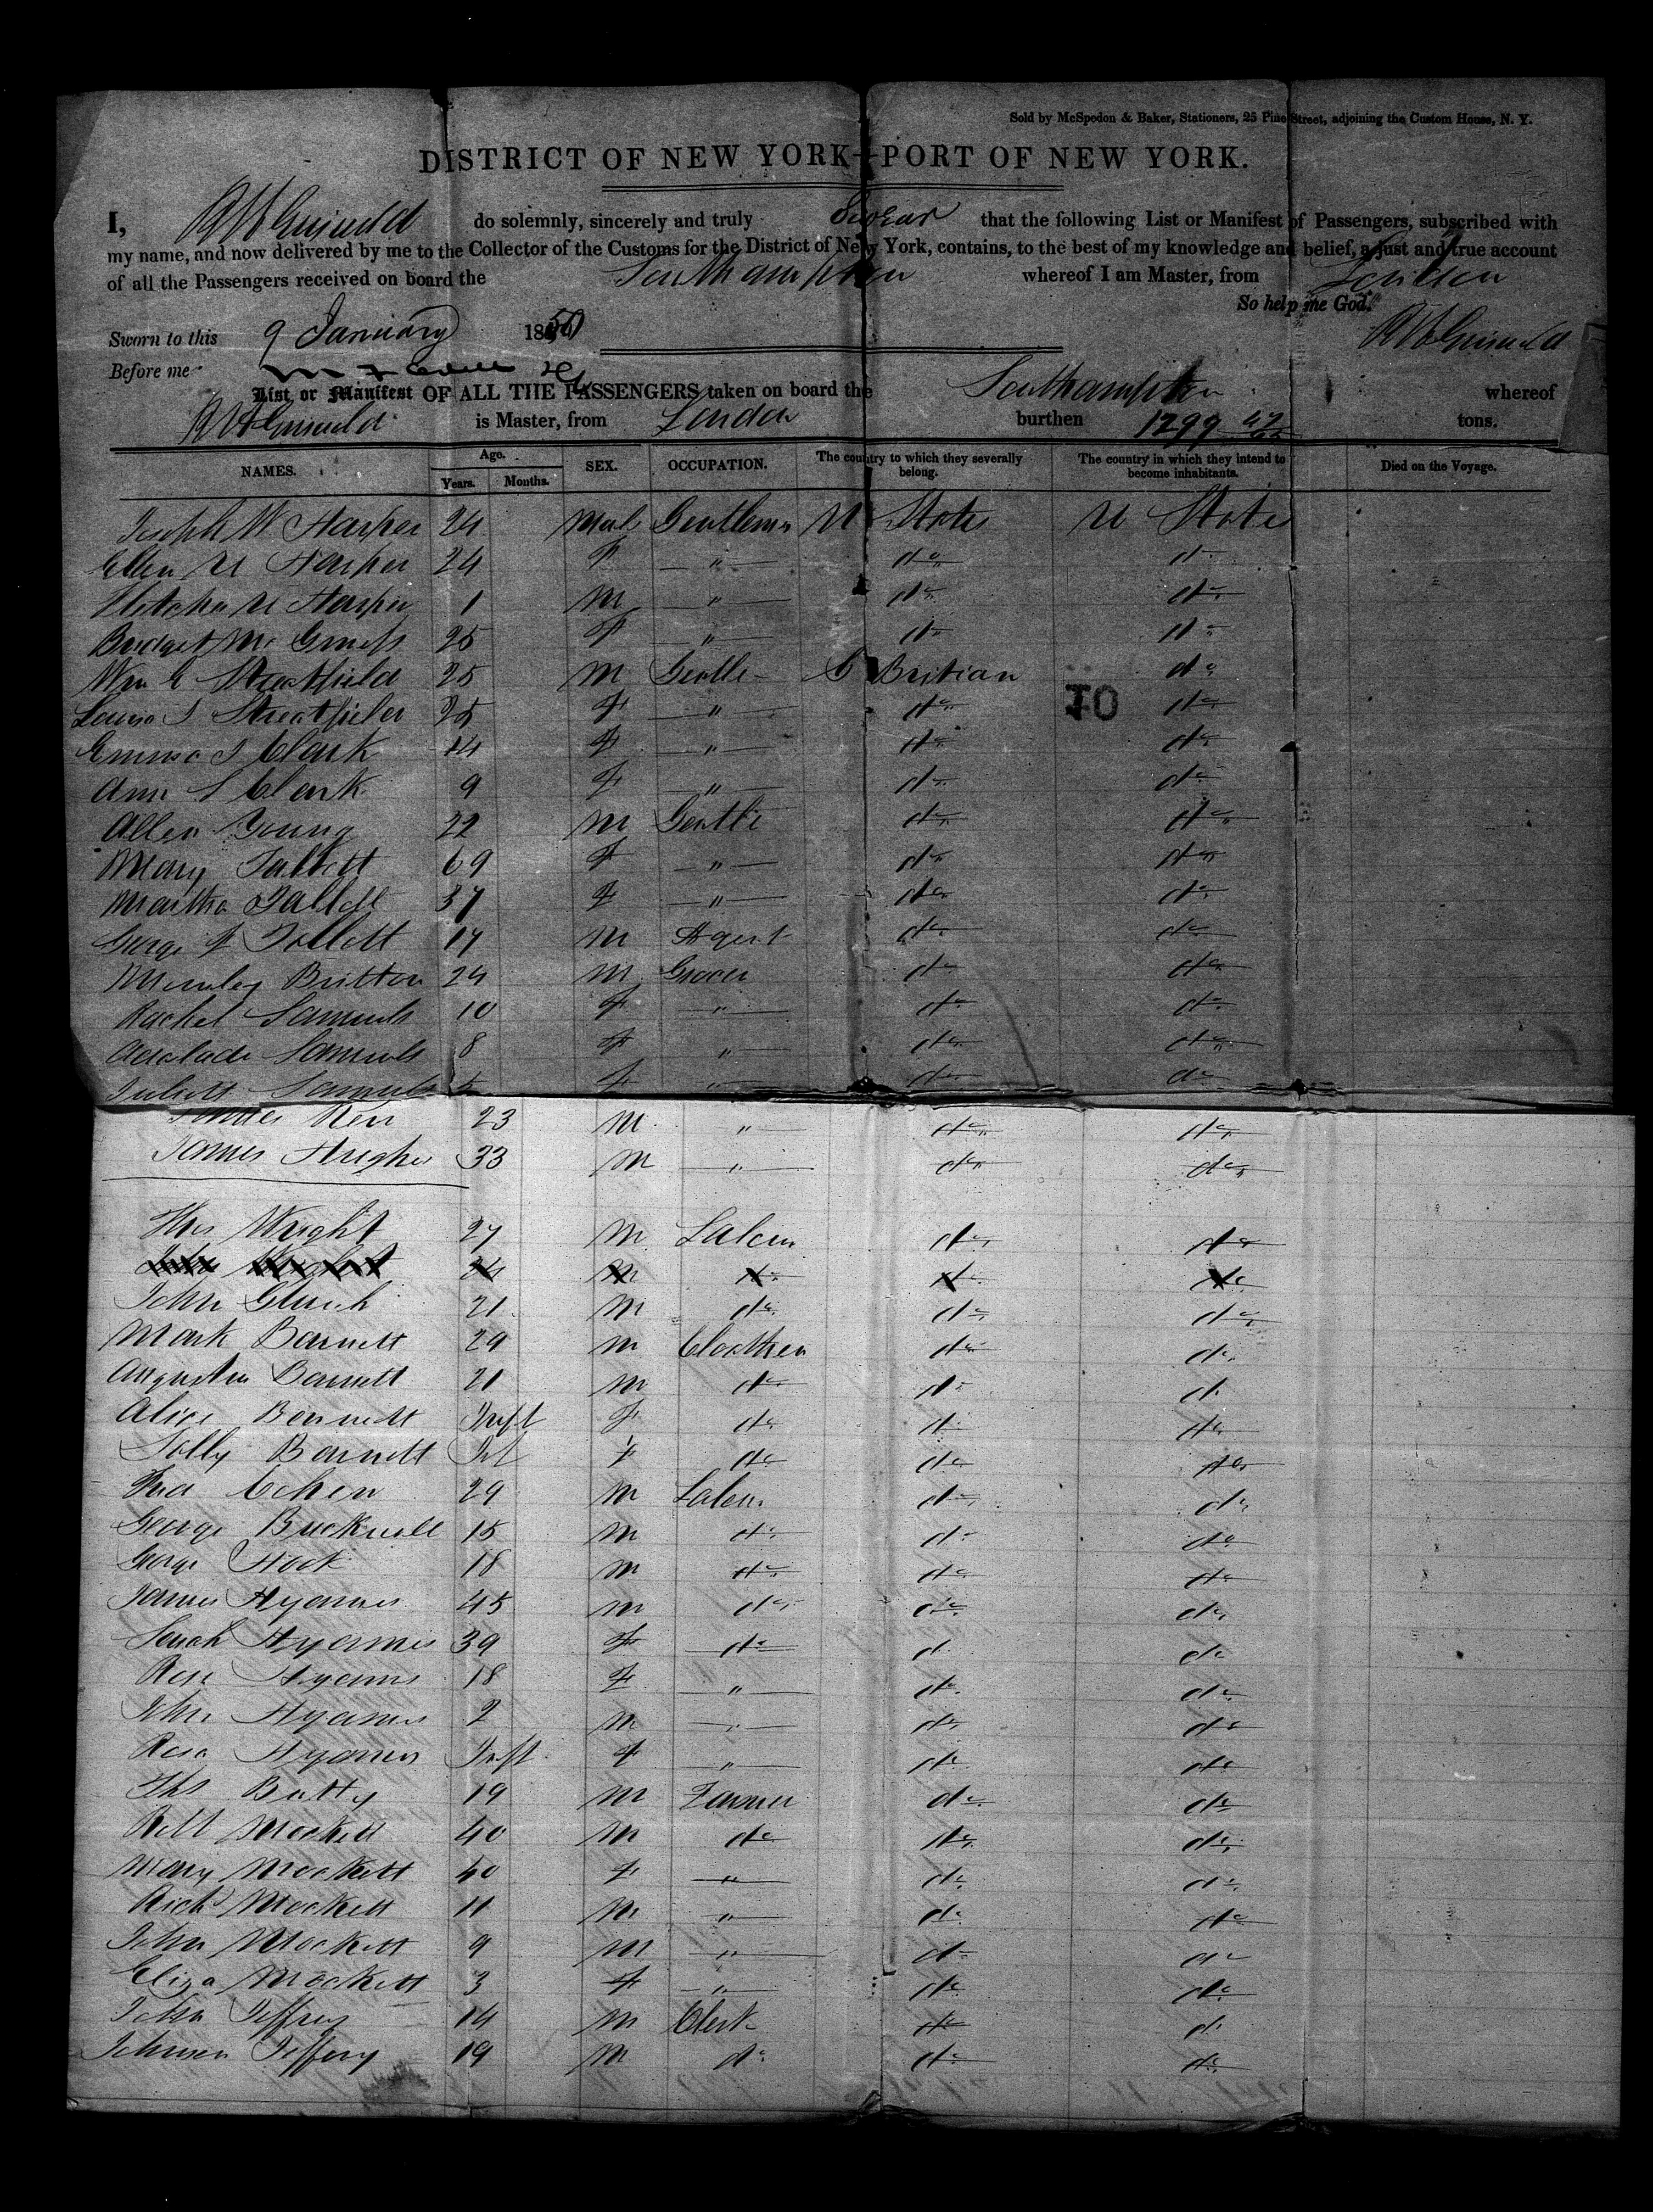 Sold by McSpedon & Baker, Stationers, 25 Pine Street, adjoining the Custom House, N. Y.
DISTRICT OF NEW YORK—PORT OF NEW YORK.
I, R W Griswold do solemnly, sincerely and truly Swear that the following List or Manifest of Passengers, subscribed with
my name, and now delivered by me to the Collector of the Customs for the District of New York, contains, to the best of my knowledge and belief, a just and true account
of all the Passengers received on board the Southampton whereof I am Master, from London
So help me God.
Sworn to this 9 January 1850 R W Griswold
Before me
List or Manifest OF ALL THE PASSENGERS taken on board the Southampton whereof
R W Griswold is Master, from London burthen 1299 tons.
NAMES. Age. Years. Months. SEX. OCCUPATION. The country to which they severally belong. The country in which they intend to become inhabitants. Died on the Voyage.
Joseph W. Harper 24 Male Gentleman U States U States
Ellen U Harper 24 F " do do
Fletcher U Harper 1 M " do do
Bridget Mc 25 F " do do
Wm E Streatfield 25 M Gentle G Britian do
Louisa S Streatfield 25 F " do do
TO
Emma S Clark 14 F " do do
Ann S Clark 9 F " do do
Allen Young 22 M Gentle do do
Mary Tallett 69 F " do do
Martha Tallett 37 F " do do
George F Tollett 17 M Agent do do
Britton 24 M Grocer do do
Rachel Samuels 10 F " do do
Adalade Samuels 8 F " do do
Juliett Samuels 5 F " do do
23 M " do do
James Hughes 33 M " do do
Thos Wright 27 M Labour do do
M do do do
John 21 M do do do
Mark Barnett 29 M Cloathier do do
Augustus Barnett 21 M do do do
Alice Barnett Inft F do do do
Solly Barnett Inf F do do do
Cohen 29 M Labour do do
George Bucknell 15 M do do do
George Hook 18 M do do do
James Hyames 45 M do do do
Sarah Hyames 39 F do do do
Rose Hyams 18 F " do do
John Hyames 2 M " do do
Rosa Hyames Inft F " do do
Thos Butty 19 M Farmer do do
Robt Mockett 40 M do do do
Mary Mockett 40 F " do do
Richd Mockett 11 M " do do
John Mockett 9 M " do do
Eliza Mockett 3 F " do do
John Jeffrey 14 M Clerk do do
Johnson Jeffery 19 M do do do